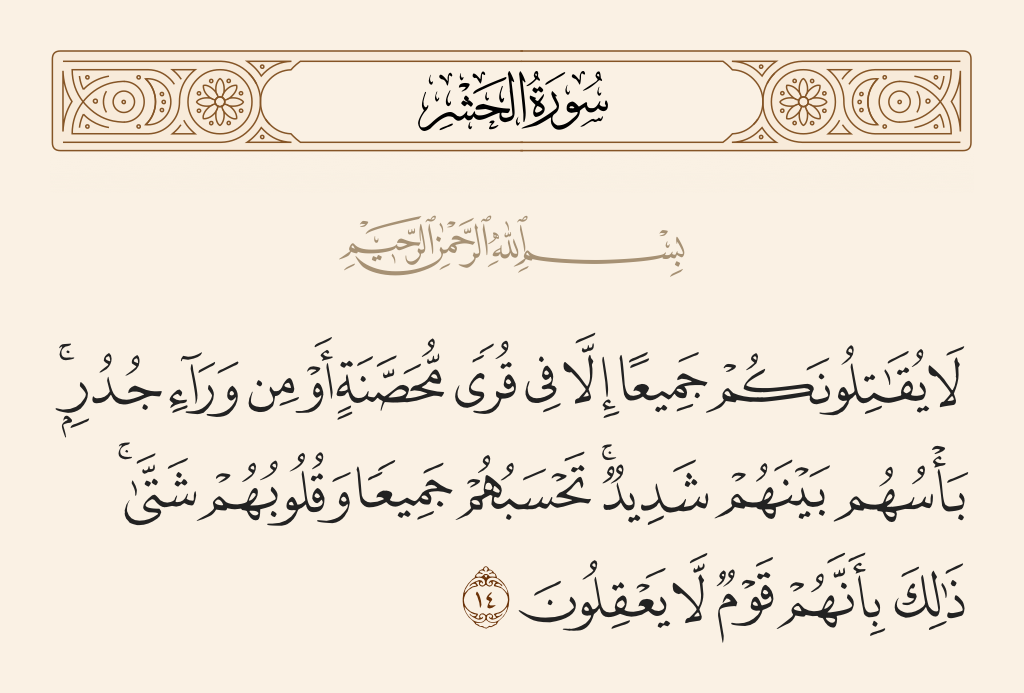 سُورَةُ الحَشْرِ
بِسْمِ ٱللَّهِ ٱلرَّحْمَٰنِ ٱلرَّحِيمِ
لَا يُقَٰتِلُونَكُمْ جَمِيعًا إِلَّا فِى قُرًى مُّحَصَّنَةٍ أَوْ مِن وَرَآءِ جُدُرٍۭ ۚ
بَأْسُهُم بَيْنَهُمْ شَدِيدٌ ۚ تَحْسَبُهُمْ جَمِيعًا وَقُلُوبُهُمْ شَتَّىٰ ۚ
ذَٰلِكَ بِأَنَّهُمْ قَوْمٌ لَّا يَعْقِلُونَ ١٤